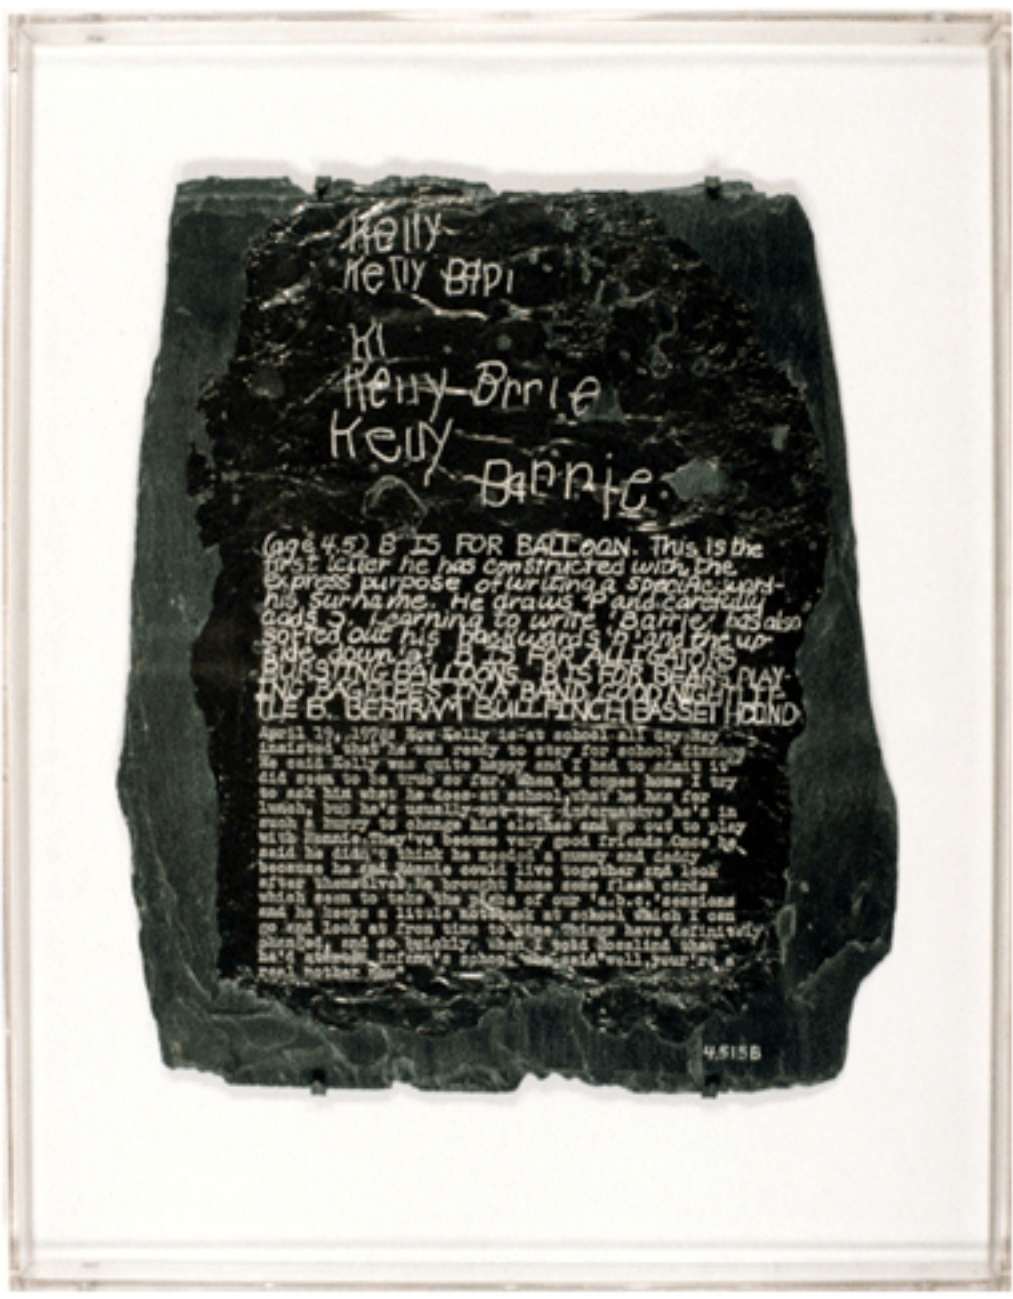 Kelly
Kelly BAPI
KI
Kelly Brrie
Kelly
Barrie
(age 4.5) B IS FOR BALLOON. This is the
first letter he has constructed with the
express purpose of writing a specific word-
his surname. He draws 'P' and carefully
adds 'Ɔ'. Learning to write 'Barrie' has also
sorted out his backwards 'n' and the up
side-down 'e'. B IS FOR ALLIGATORS
BURSTING BALLOONS. B IS FOR BEARS PLAY-
ING BAGPIPES IN A BAND. GOODNIGHT LIT-
TLE B. BERTRAM BULLFINCH BASSET HOUND
April 19, 1978: Now Kelly is at school all day. Ray
insisted that he was ready to stay for school dinners.
He said Kelly was quite happy and I had to admit it
did seem to be true so far. When he comes home I try
to ask him what he does at school, what he has for
lunch, but he's usually not very informative he's in
such a hurry to change his clothes and go out to play
with Ronnie. They've become very good friends. Once he
said he didn't think he needed a mummy and daddy
because he and Ronnie could live together and look
after themselves. He brought home some flash cards
which seem to take the place of our 'a.b.c.' sessions
and he keeps a little notebook at school which I can
go and look at from time to time. Things have definitely
changed, and so quickly. When I told Rosalind that
he'd infant's school she said 'well, your're a
real mother now
4.515B